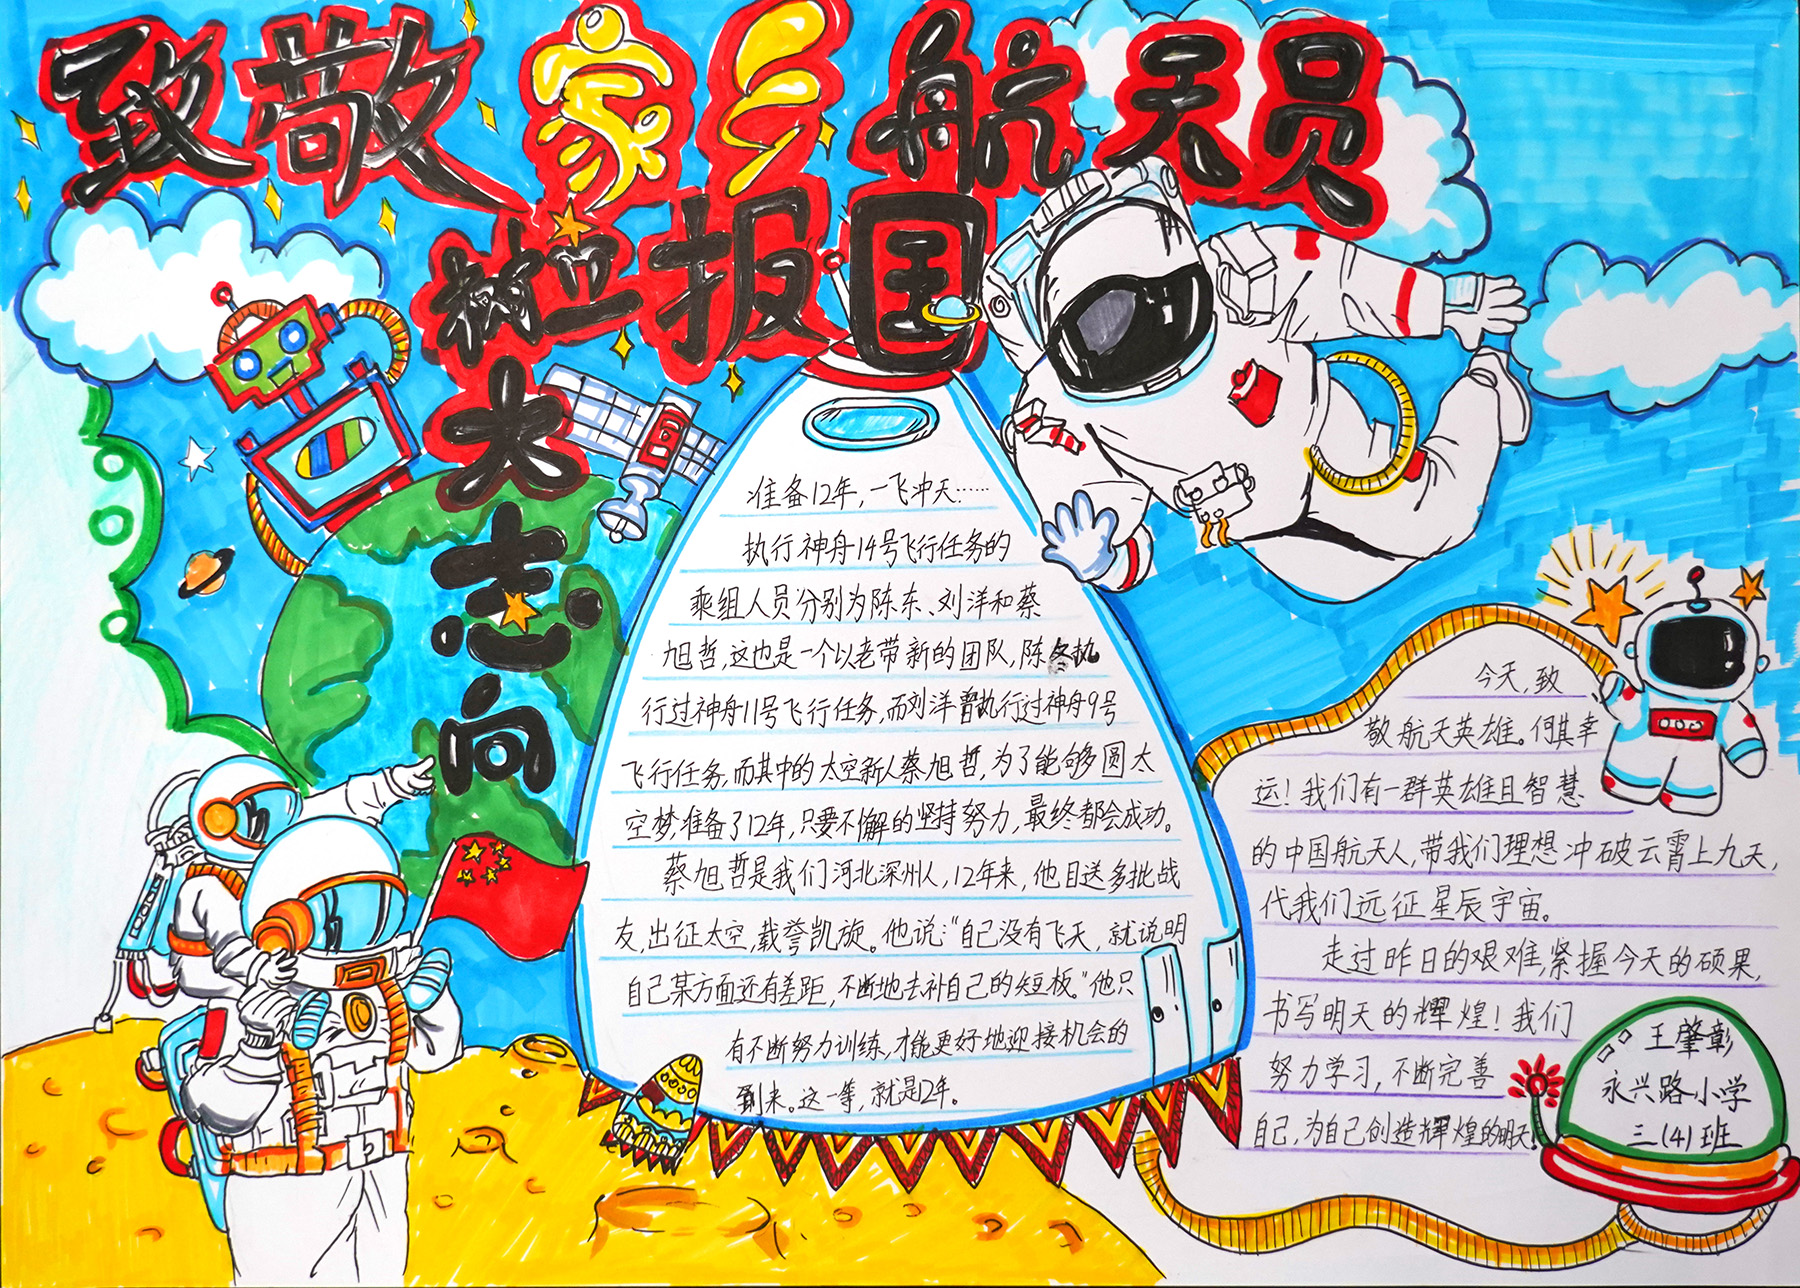 致敬家乡航天员
树立报国
大志向
准备12年,一飞冲天……
执行神舟14号飞行任务的
乘组人员分别为陈东、刘洋和蔡
旭哲,这也是一个以老带新的团队,陈冬执
行过神舟11号飞行任务,而刘洋曾执行过神舟9号
飞行任务,而其中的太空新人蔡旭哲,为了能够圆太
空梦准备了12年,只要不懈的坚持努力,最终都会成功。
蔡旭哲是我们河北深州人,12年来,他目送多批战
友,出征太空,载誉凯旋。他说:“自己没有飞天,就说明
自己某方面还有差距,不断地去补自己的短板。”他只
有不断努力训练,才能更好地迎接机会的
到来。这一等,就是12年。
今天,致
敬航天英雄。何其幸
运!我们有一群英雄且智慧
的中国航天人,带我们理想冲破云霄上九天,
代我们远征星辰宇宙。
走过昨日的艰难,紧握今天的硕果,
书写明天的辉煌!我们
努力学习,不断完善
自己,为自己创造辉煌的明天!
王肇彰
永兴路小学
三(4)班